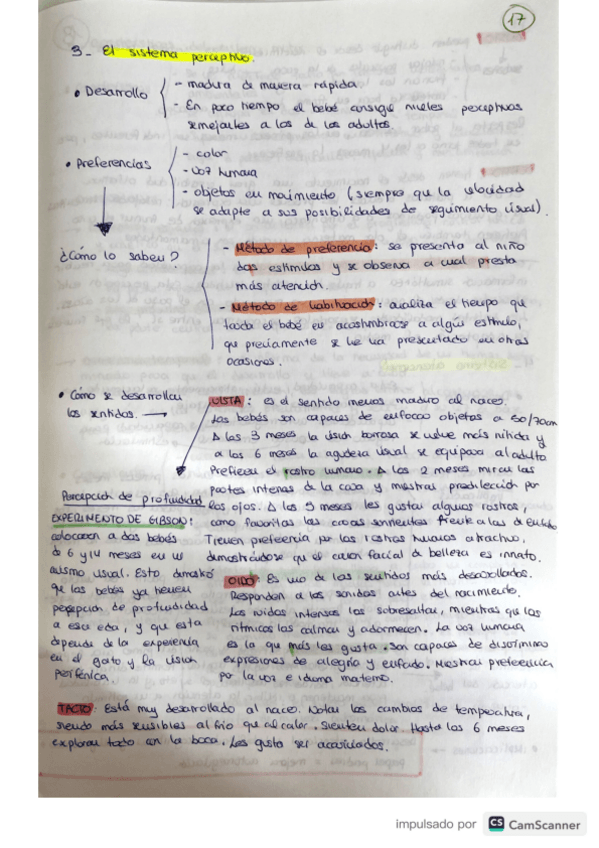 17
3- El sistema perceptivo.
• Desarrollo
- madura de manera rápida.
- En poco tiempo el bebé consigue niveles perceptivos
semejantes a los de los adultos.
• Preferencias
- color
- voz humana
- objetos en movimiento (siempre que la velocidad
se adapte a sus posibilidades de seguimiento visual).
¿Cómo lo saben?
- Método de preferencia: se presenta al niño
dos estímulos y se observa a cual presta
más atención.
- Método de habituación: analiza el tiempo que
tarda el bebé en acostumbrarse a algún estímulo,
que previamente se le ha presentado en otras
ocasiones.
• Cómo se desarrollan
los sentidos. →
VISTA: es el sentido menos maduro al nacer.
Los bebés son capaces de enfocar objetos a 50/70cm
A los 3 meses la visión borrosa se vuelve más nítida y
a los 6 meses la agudeza visual se equipara al adulto
Prefieren el rostro humano. A los 2 meses miran las
partes internas de la cara y muestran predilección por
los ojos. A los 9 meses les gustan algunos rostros,
como favoritas las caras sonrientes frente a las de enfado
Tienen preferencia por los rostros humanos atractivo,
demostrándose que el canon facial de belleza es innato.
Percepción de profundidad
EXPERIMENTO DE GIBSON:
colocaron a dos bebés
de 6 y 14 meses en un
abismo visual. Esto demostró
que los bebés ya tienen
percepción de profundidad
a esa edad, y que esta
depende de la experiencia
en el gateo y la visión
periférica.
OIDO: Es uno de los sentidos más desarrollados.
Responden a los sonidos antes del nacimiento.
Los ruidos intensos los sobresaltan, mientras que los
rítmicos los calman y adormecen. La voz humana
es la que más les gusta. Son capaces de discriminar
expresiones de alegría y enfado. Muestran preferencia
por la voz e idioma materno.
TACTO: Está muy desarrollado al nacer. Notan los cambios de temperatura,
siendo más sensibles al frío que al calor. Sienten dolor. Hasta los 6 meses
exploran todo con la boca. Les gusta ser acariciados.
impulsado por CS CamScanner